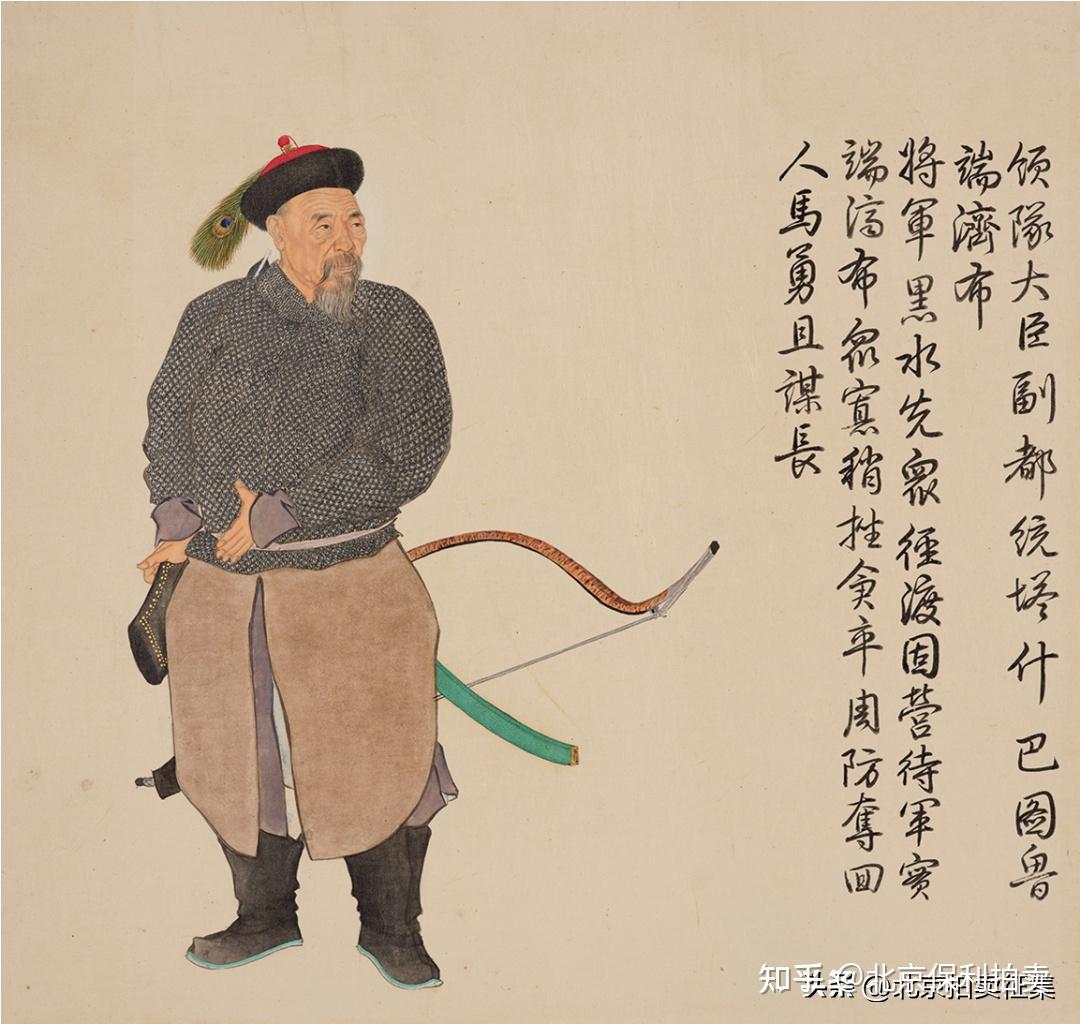 領隊大臣副都統塔什巴圖魯
端濟布
將軍黑水先眾徑渡固營待軍實
端濟布眾寡稍挫卒周防奪回
人馬勇且謀長
知乎 @北京保利拍卖
头条 @北京拍卖征集